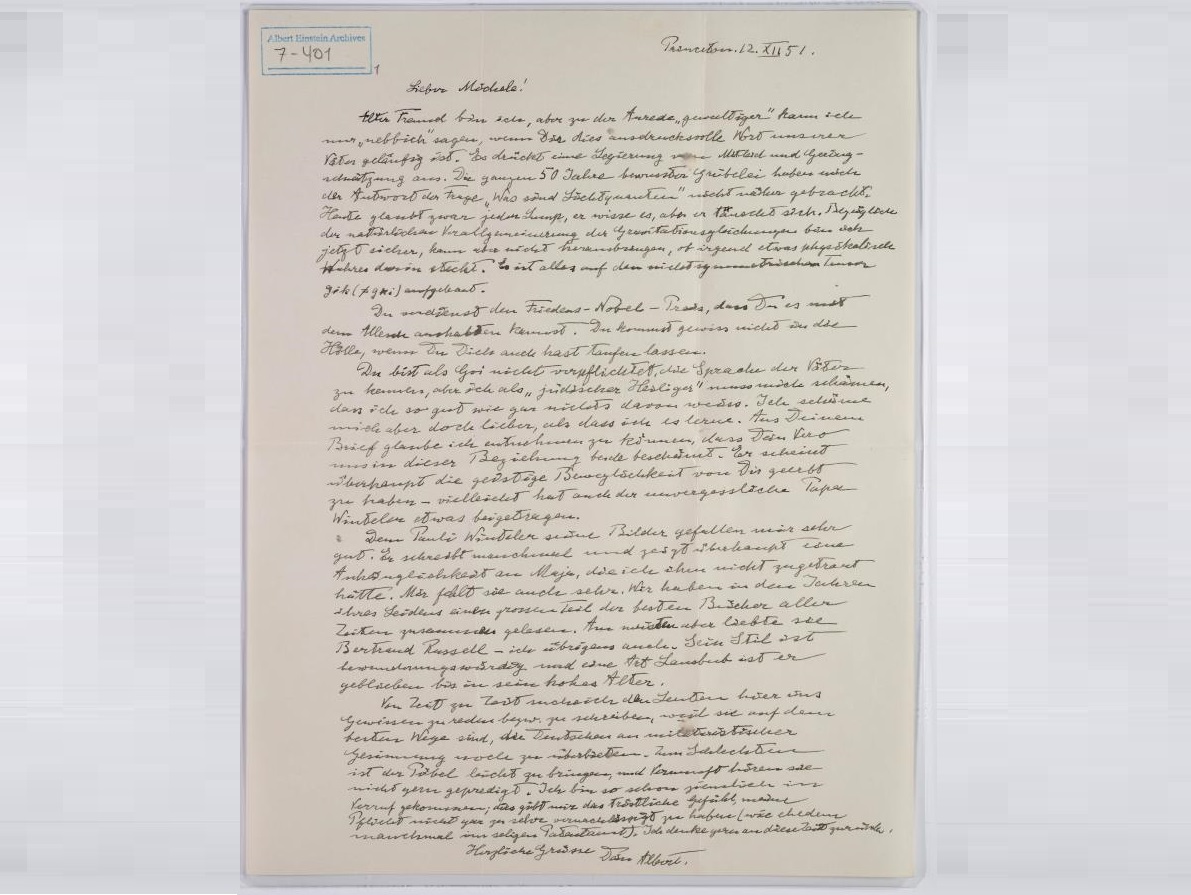 Albert Einstein Archives
7-401
1
Princeton. 12. XII 51.
Lieber Michele!
Alter Freund bin ich, aber zu der Anrede „gewaltiger" kann ich
nur „nebbich" sagen, wenn Dir dies ausdrucksvolle Wort unserer
Väter geläufig ist. Es drückt eine Legierung von Mitleid und Gering-
schätzung aus. Die ganzen 50 Jahre bewusster Grübelei haben mich
der Antwort der Frage „Was sind Lichtquanten" nicht näher gebracht.
Heute glaubt zwar jeder Lump, er wisse es, aber er täuscht sich. Bezüglich
der natürlichen Verallgemeinerung der Gravitationsgleichungen bin ich
jetzt sicher, kann aber nicht herausbringen, ob irgend etwas physikalisch
Wahres darin steckt. Es ist alles auf den nichtsymmetrischen Tensor
gik (≠ gki) aufgebaut.
Du verdienst den Friedens-Nobel-Preis, dass Du es mit
dem aushalten kannst. Du kommst gewiss nicht in die
Hölle, wenn Du Dich auch hast taufen lassen.
Du bist als Goi nicht verpflichtet, die Sprache der Väter
zu kennen, aber ich als „jüdischer Heiliger" muss mich schämen,
dass ich so gut wie gar nichts davon weiss. Ich schäme
mich aber doch lieber, als dass ich es lerne. Aus Deinem
Brief glaube ich entnehmen zu können, dass Dein Vero
uns in dieser Beziehung beide beschämt. Er scheint
überhaupt die geistige Beweglichkeit von Dir geerbt
zu haben – vielleicht hat auch der unvergessliche Papa
Winteler etwas beigetragen.
Dem Pauli Winteler seine Bilder gefallen mir sehr
gut. Er schreibt manchmal und zeigt überhaupt eine
Anhänglichkeit an Maja, die ich ihm nicht zugetraut
hätte. Mir fehlt sie auch sehr. Wir haben in den Jahren
ihres Leidens einen grossen Teil der besten Bücher aller
Zeiten zusammen gelesen. Am meisten aber liebte sie
Bertrand Russell – ich übrigens auch. Sein Stil ist
bewunderungswürdig und eine Art Lausbub ist er
geblieben bis in sein hohes Alter.
Von Zeit zu Zeit suche ich den Leuten hier ins
Gewissen zu reden bezw. zu schreiben, weil sie auf dem
besten Wege sind, die Deutschen an militaristischer
Gesinnung noch zu überbieten. Zum Schlechten
ist der Pöbel leicht zu bringen, und Vernunft hören sie
nicht gern gepredigt. Ich bin so schon ziemlich in
Verruf gekommen; dies gibt mir das tröstliche Gefühl, meine
Pflicht nicht gar zu sehr vernachlässigt zu haben (wie ehedem
manchmal im seligen Patentamt). Ich denke gern an diese Zeit zurück.
Herzliche Grüsse Dein Albert.